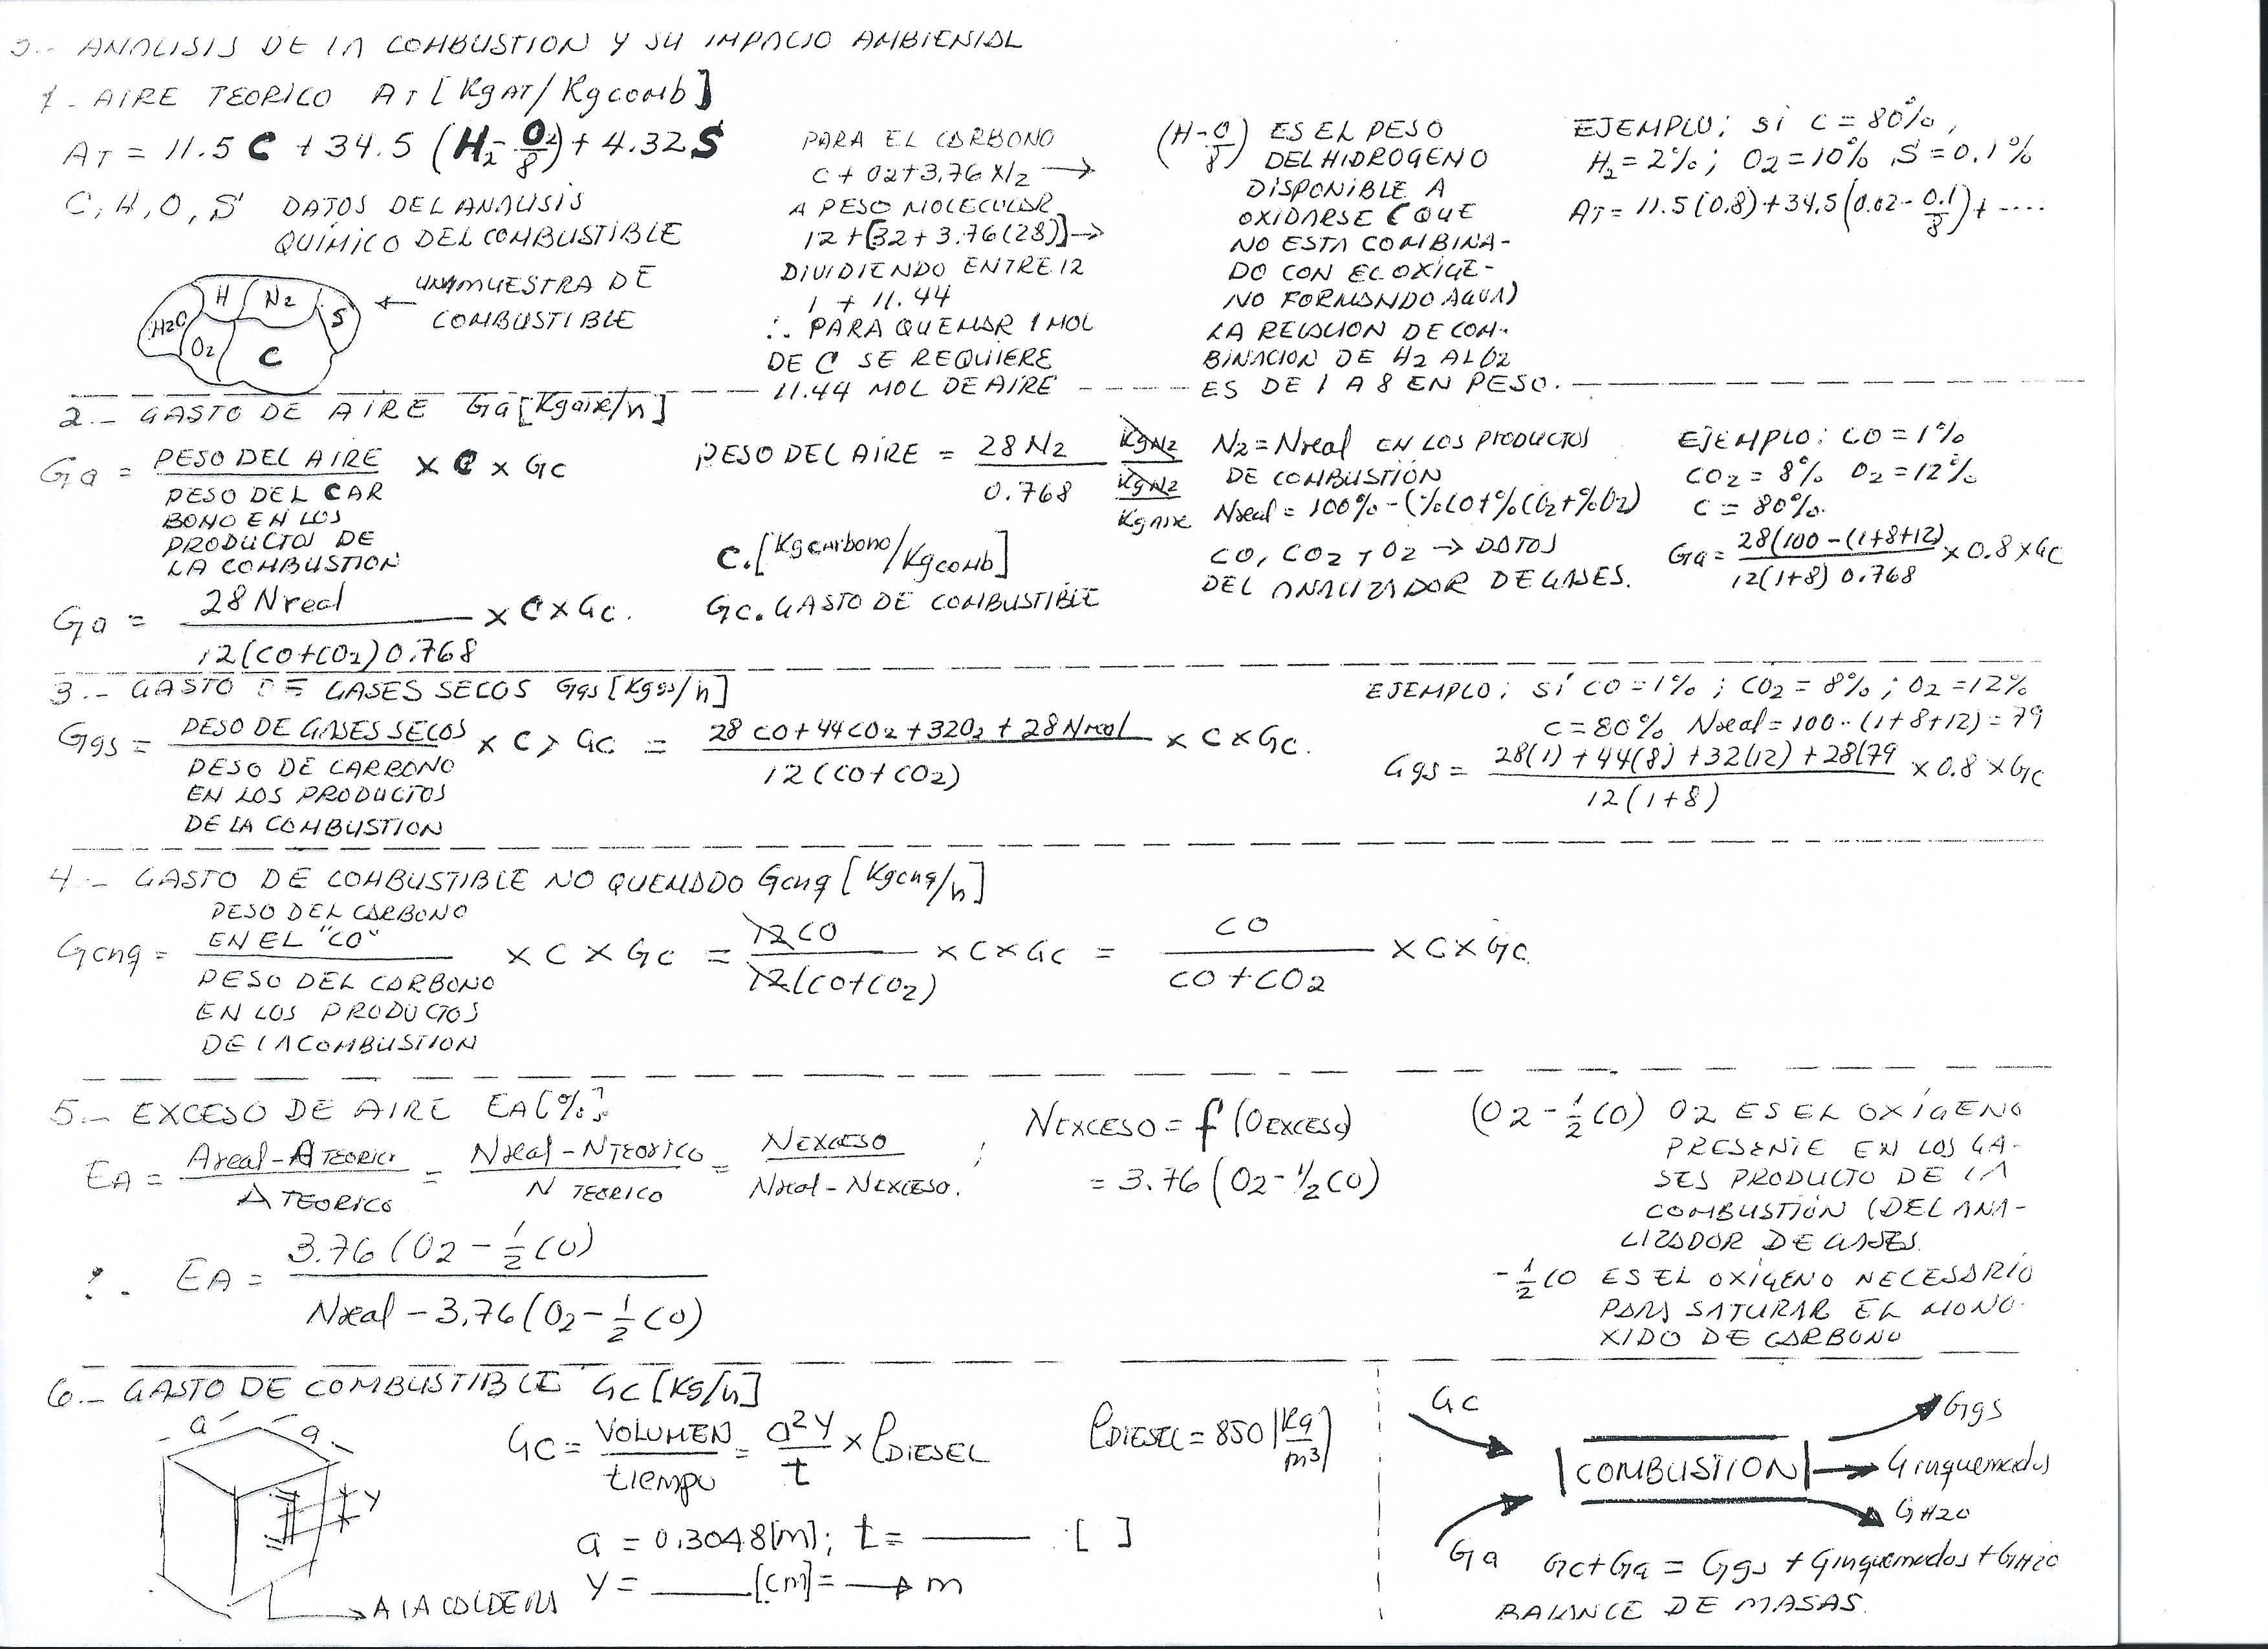 5.- ANALISIS DE LA COMBUSTION Y SU IMPACTO AMBIENTAL
1.- AIRE TEORICO AT [KgAT/Kgcomb]
AT = 11.5 C + 34.5 (H2 - O2/8) + 4.32 S
C, H, O, S DATOS DEL ANALISIS
QUÍMICO DEL COMBUSTIBLE
← UNA MUESTRA DE
COMBUSTIBLE
H2O H N2 S O2 C
PARA EL CARBONO
C + O2 + 3.76 N2 →
A PESO MOLECULAR
12 + [32 + 3.76(28)] →
DIVIDIENDO ENTRE 12
1 + 11.44
∴ PARA QUEMAR 1 MOL
DE C SE REQUIERE
11.44 MOL DE AIRE
(H - O/8) ES EL PESO
DEL HIDROGENO
DISPONIBLE A
OXIDARSE (QUE
NO ESTA COMBINA-
DO CON EL OXIGE-
NO FORMANDO AGUA)
LA RELACION DE COM-
BINACION DE H2 AL O2
ES DE 1 A 8 EN PESO.
EJEMPLO: SI C = 80%,
H2 = 2%; O2 = 10% S = 0.1%
AT = 11.5(0.8) + 34.5(0.02 - 0.1/8) + ....
2.- GASTO DE AIRE Ga [Kgaire/h]
Ga = PESO DEL AIRE / PESO DEL CAR
BONO EN LOS
PRODUCTOS DE
LA COMBUSTION × C × Gc
Ga = 28 Nreal / 12(CO+CO2) 0.768 × C × Gc.
PESO DEL AIRE = 28 N2 / 0.768 KgN2 / KgN2 / KgAIRE
C. [Kgcarbono/Kgcomb]
Gc. GASTO DE COMBUSTIBLE
N2 = Nreal EN LOS PRODUCTOS
DE COMBUSTIÓN
Nreal = 100% - (%CO+%CO2+%O2)
CO, CO2 Y O2 → DATOS
DEL ANALIZADOR DE GASES.
EJEMPLO: CO = 1%
CO2 = 8% O2 = 12%
C = 80%.
Ga = 28(100 - (1+8+12) / 12(1+8) 0.768 × 0.8 × Gc
3.- GASTO DE GASES SECOS Ggs [Kggs/h]
Ggs = PESO DE GASES SECOS / PESO DE CARBONO
EN LOS PRODUCTOS
DE LA COMBUSTION × C × Gc = 28 CO + 44 CO2 + 32 O2 + 28 Nreal / 12(CO+CO2) × C × Gc.
EJEMPLO: SÍ CO = 1%; CO2 = 8%; O2 = 12%
C = 80% Nreal = 100 - (1+8+12) = 79
Ggs = 28(1) + 44(8) + 32(12) + 28(79 / 12(1+8) × 0.8 × Gc
4.- GASTO DE COMBUSTIBLE NO QUEMADO Gcnq [Kgcnq/h]
Gcnq = PESO DEL CARBONO
EN EL "CO" / PESO DEL CARBONO
EN LOS PRODUCTOS
DE LA COMBUSTION × C × Gc = 12 CO / 12(CO+CO2) × C × Gc = CO / CO + CO2 × C × Gc
5.- EXCESO DE AIRE EA [%]
EA = Areal - ATEORICO / ATEORICO = Nreal - NTEORICO / NTEORICO = NEXCESO / Nreal - NEXCESO. ;
NEXCESO = f (OEXCESO)
= 3.76 (O2 - 1/2 CO)
∴ EA = 3.76 (O2 - 1/2 CO) / Nreal - 3.76 (O2 - 1/2 CO)
(O2 - 1/2 CO) O2 ES EL OXÍGENO
PRESENTE EN LOS GA-
SES PRODUCTO DE LA
COMBUSTIÓN (DEL ANA-
LIZADOR DE GASES.
- 1/2 CO ES EL OXÍGENO NECESARIO
PARA SATURAR EL MONO-
XIDO DE CARBONO
6.- GASTO DE COMBUSTIBLE GC [Kg/h]
a a Y
A LA CALDERA
GC = VOLUMEN / tiempo = a²Y / t × ρDIESEL
ρDIESEL = 850 [Kg/m3]
a = 0.3048 [m]; t = ____ [ ]
Y = ____ [cm] = __ m
Gc
Ga
COMBUSTION
Ggs
Ginquemados
GH2O
Gc + Ga = Ggs + Ginquemados + GH2O
BALANCE DE MASAS.